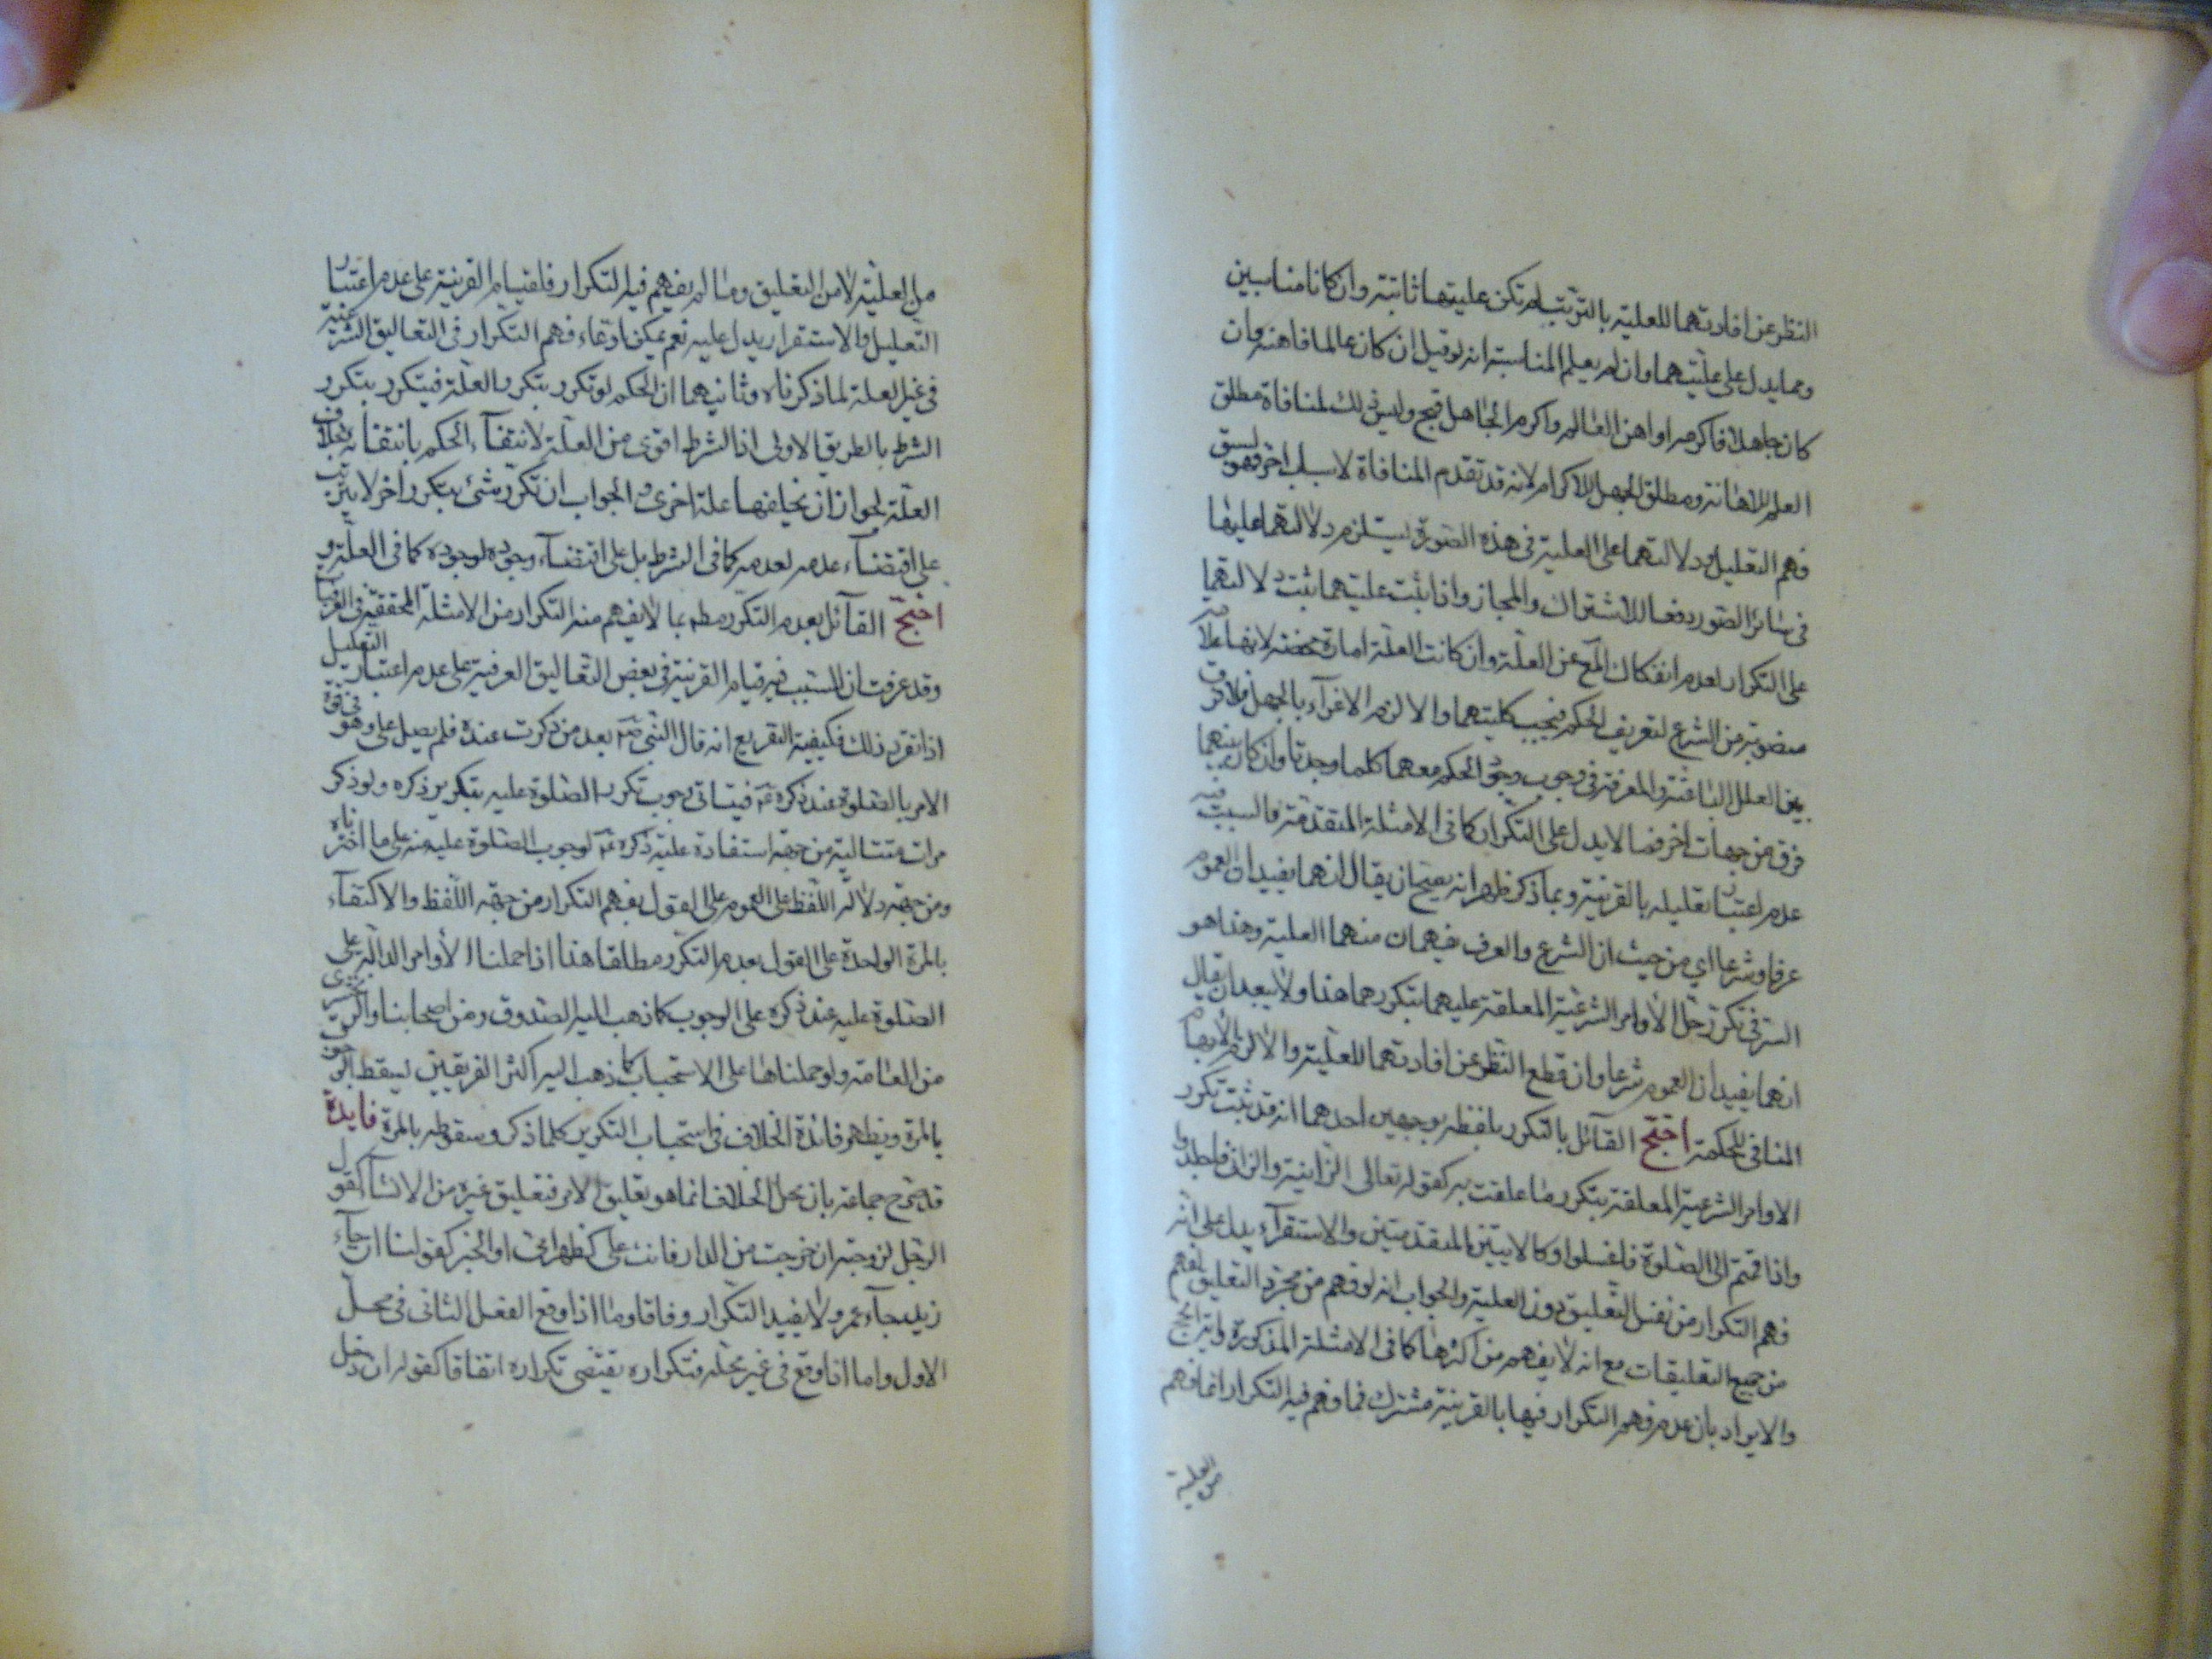 النظر عن افادتهما للعلية بالترتب لم تكن عليتها ثابتة وان كانا مناسبين
ومما يدل على عليتهما وان لم يعلم المناسبة انه لو قيل ان كان عالما فاهنه وان
كان جاهلا فاكرمه او اهن العالم واكرم الجاهل قبح وليس ذلك لمنافاة مطلق
العلم للاهانة ومطلق الجهل للاكرام لانه قد تقدم المنافاة لاسباب اخر فهو لسبق
فهم التعليل ودلالتهما على العلية في هذه الصورة يستلزم دلالتهما عليها
في سائر الصور دفعا للاشتراك والمجاز واذا ثبت عليتهما ثبت دلالتهما
على التكرار لعدم انفكاك المع عن العلة وان كانت العلة امارة محضة لانها علامة
منصوبة من الشرع لتعريف الحكم فيجب كليتهما والا لزم الاغرآء بالجهل فلا فرق
بين العلل الباعثة والمعرفة في وجوب وجود الحكم معهما كلما وجدتا وان كان بينهما
فرق من جهات اخر فما لا يدل على التكرار كما في الامثلة المتقدمة فالسبب فيه
عدم اعتبار تعليله بالقرينة وبما ذكر ظهر انه يصح ان يقال انهما يفيدان العموم
عرفا وشرعا اي من حيث ان الشرع والعرف يفهمان منهما العلية وهذا هو
السر في تكرر جل الاوامر الشرعية المعلقة عليهما بتكررهما هذا ولا يبعد ان يقال
انهما يفيدان العموم شرعا وان قطع النظر عن افادتهما للعلية والا لزم الابهام
المنافي للحكمة احتج القآئل بالتكرر بلفظه بوجهين احدهما انه قد ثبت تكرر
الاوامر الشرعية المعلقة بتكرر ما علقت به كقوله تعالى الزانية والزاني فاجلدوا
واذا قمتم الى الصلوة فاغسلوا وكالايتين المتقدمتين والاستقرآء يدل على انه
فهم التكرار من نفس التعليق دون العلية والجواب انه لو فهم من مجرد التعليق لفهم
من جميع التعليقات مع انه لا يفهم من اكثرها كما في الامثلة المذكورة
والايراد بان عدم فهم التكرار فيها بالقرينة مشترك فما فهم فيه التكرار انما فهم
من العلية
من العلية لا من التعليق وما لم يفهم فيه التكرار فلقيام القرينة على عدم اعتبار
التعليل والاستقرار يدل عليه نعم يمكن ادعاء فهم التكرار في التعاليق الشرعية
في غير العلة لما ذكرناه وثانيهما ان الحكم لو تكرر بتكرر العلة فيتكرر بتكرر
الشرط بالطريق الاولى اذ الشرط اقوى من العلة لانتفآء الحكم بانتفائه بخلاف
العلة لجواز ان يخلفها علة اخرى والجواب ان تكرر شئ بتكرر اخر لا يترتب
على اقتضآء عدمه لعدمه كما في الشرط بل على اقتضآء وجوده لوجوده كما في العلة و
احتج القآئل بعدم التكرر مطم بما لا يفهم منه التكرار من الامثلة المحققة في العرفيات
وقد عرفت ان السبب فيه قيام القرينة في بعض التعاليق العرفية على عدم اعتبار التعليل
اذا تقرر ذلك فكيفية التفريع انه قال النبي صم بعد من ذكرت عنده فلم يصل على وهو في قوة
الامر بالصلوة عند ذكره عم فيتاتى وجوب تكرر الصلوة عليه بتكرير ذكره ولو ذكر
مرات متتالية من جهة استفادة علية ذكره عم لوجوب الصلوة عليه منه على ما اخترناه
ومن جهة دلالة اللفظ على العموم على القول بفهم التكرار من جهة اللفظ والاكتفآء
بالمرة الواحدة على القول بعدم التكرر مطلقا هذا اذا حملنا الاوامر الدالة على
الصلوة عليه عند ذكره على الوجوب كما ذهب اليه الصدوق ومن اصحابنا والزمخشرى
من العامة ولو حملناها على الاستحباب كما ذهب اليه اكثر الفريقين ليسقط الوجوب
بالمرة ويظهر فائدة الخلاف في استحباب التكرير كلما ذكر وسقوطه بالمرة فايدة
قد صرح جماعة بان محل الخلاف انما هو تعليق الامر فتعليق غيره من الانشآء كقول
الرجل لزوجته ان خرجت من الدار فانت على كظهر امى او الخبر كقولنا ان جآء
زيد جآء عمرو لا يفيد التكرار وفاقا وما اذا وقع الفعل الثانى في محل
الاول واما اذا وقع في غير محله فتكراره يقتضى تكراره اتفاقا كقوله ان دخل